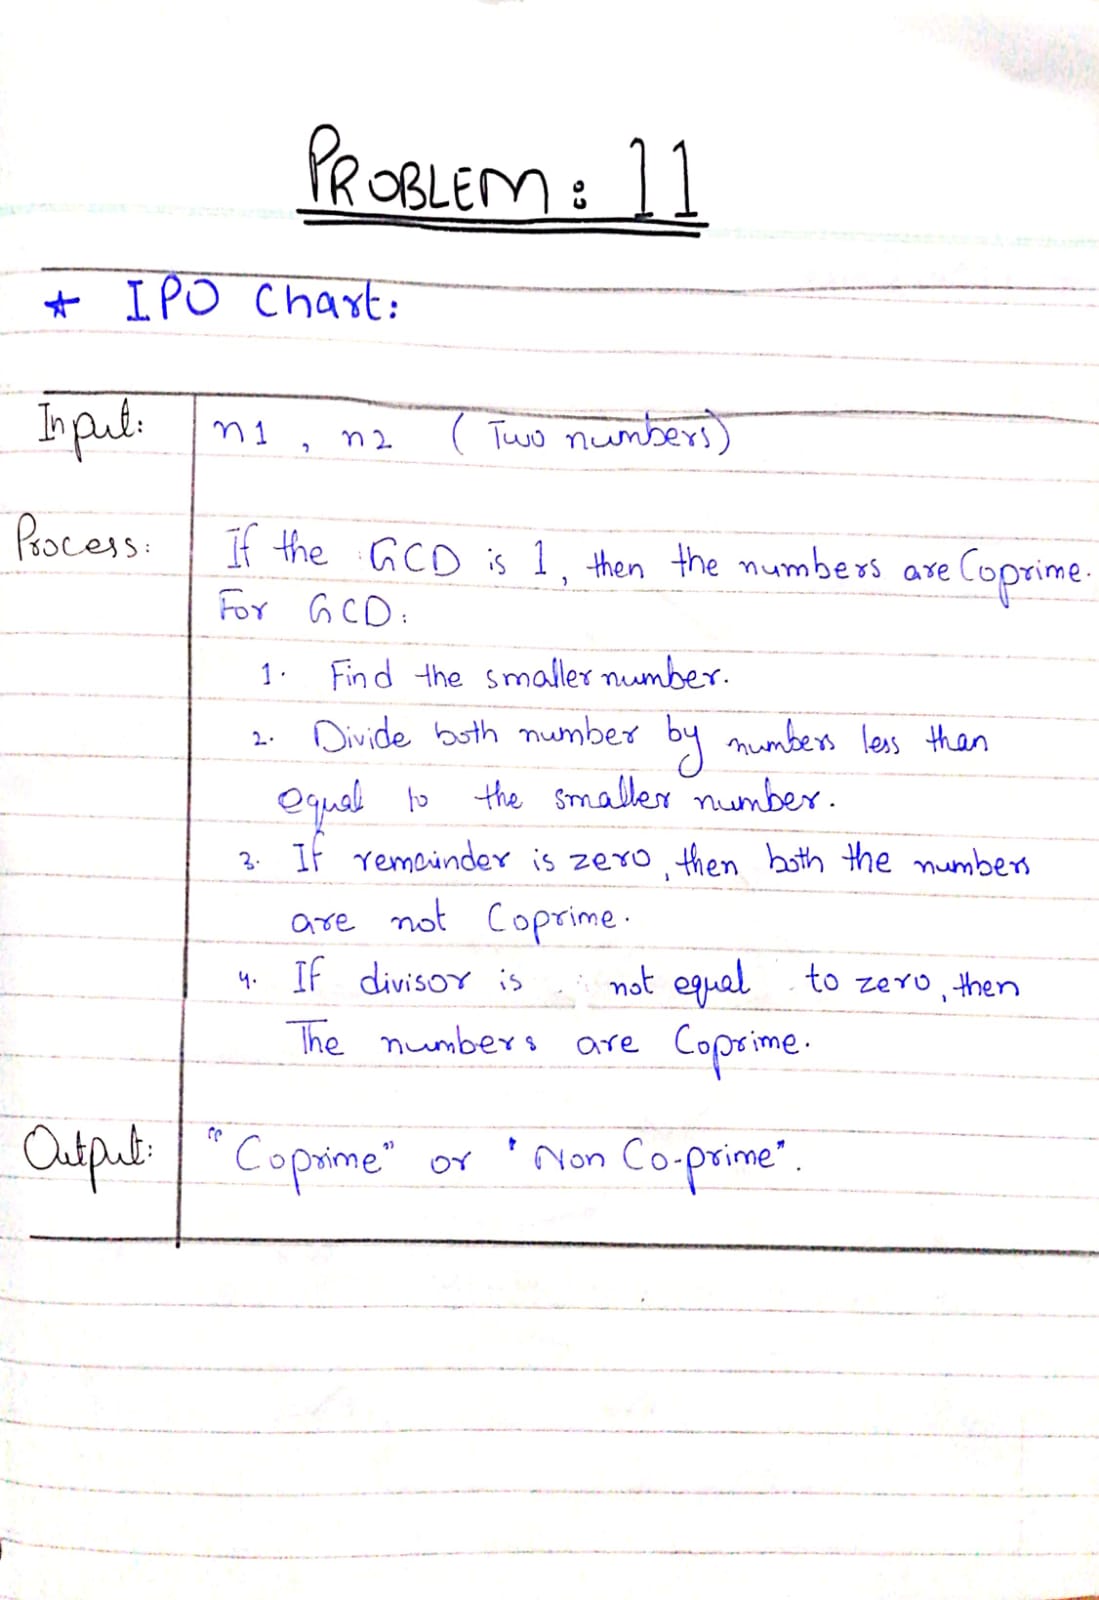 PROBLEM: 11
* IPO Chart:
Input: n1, n2 (Two numbers)
Process: If the GCD is 1, then the numbers are Coprime.
For GCD:
1. Find the smaller number.
2. Divide both number by numbers less than
equal to the smaller number.
3. If remainder is zero, then both the numbers
are not Coprime.
4. If divisor is not equal to zero, then
The numbers are Coprime.
Output: "Coprime" or "Non Co-prime".